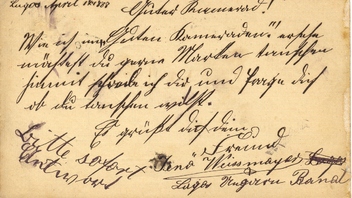 Lugos April
Guter Kamerad!
Wie ich im "Guten Kameraden" ersehe
möchtest du gerne Marken tauschen
hiemit schreib ich dir und frage dich
ob du tauschen willst.
Es grüßt dich dein
Freund
Jenö Wussmayer
Lugos Ungarn Banat
Bitte sofort
Antwort